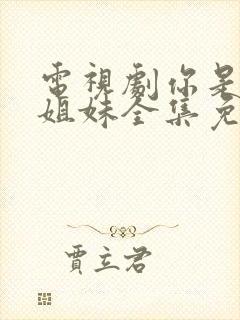 電視劇你是
姐妹全集免
賈立君